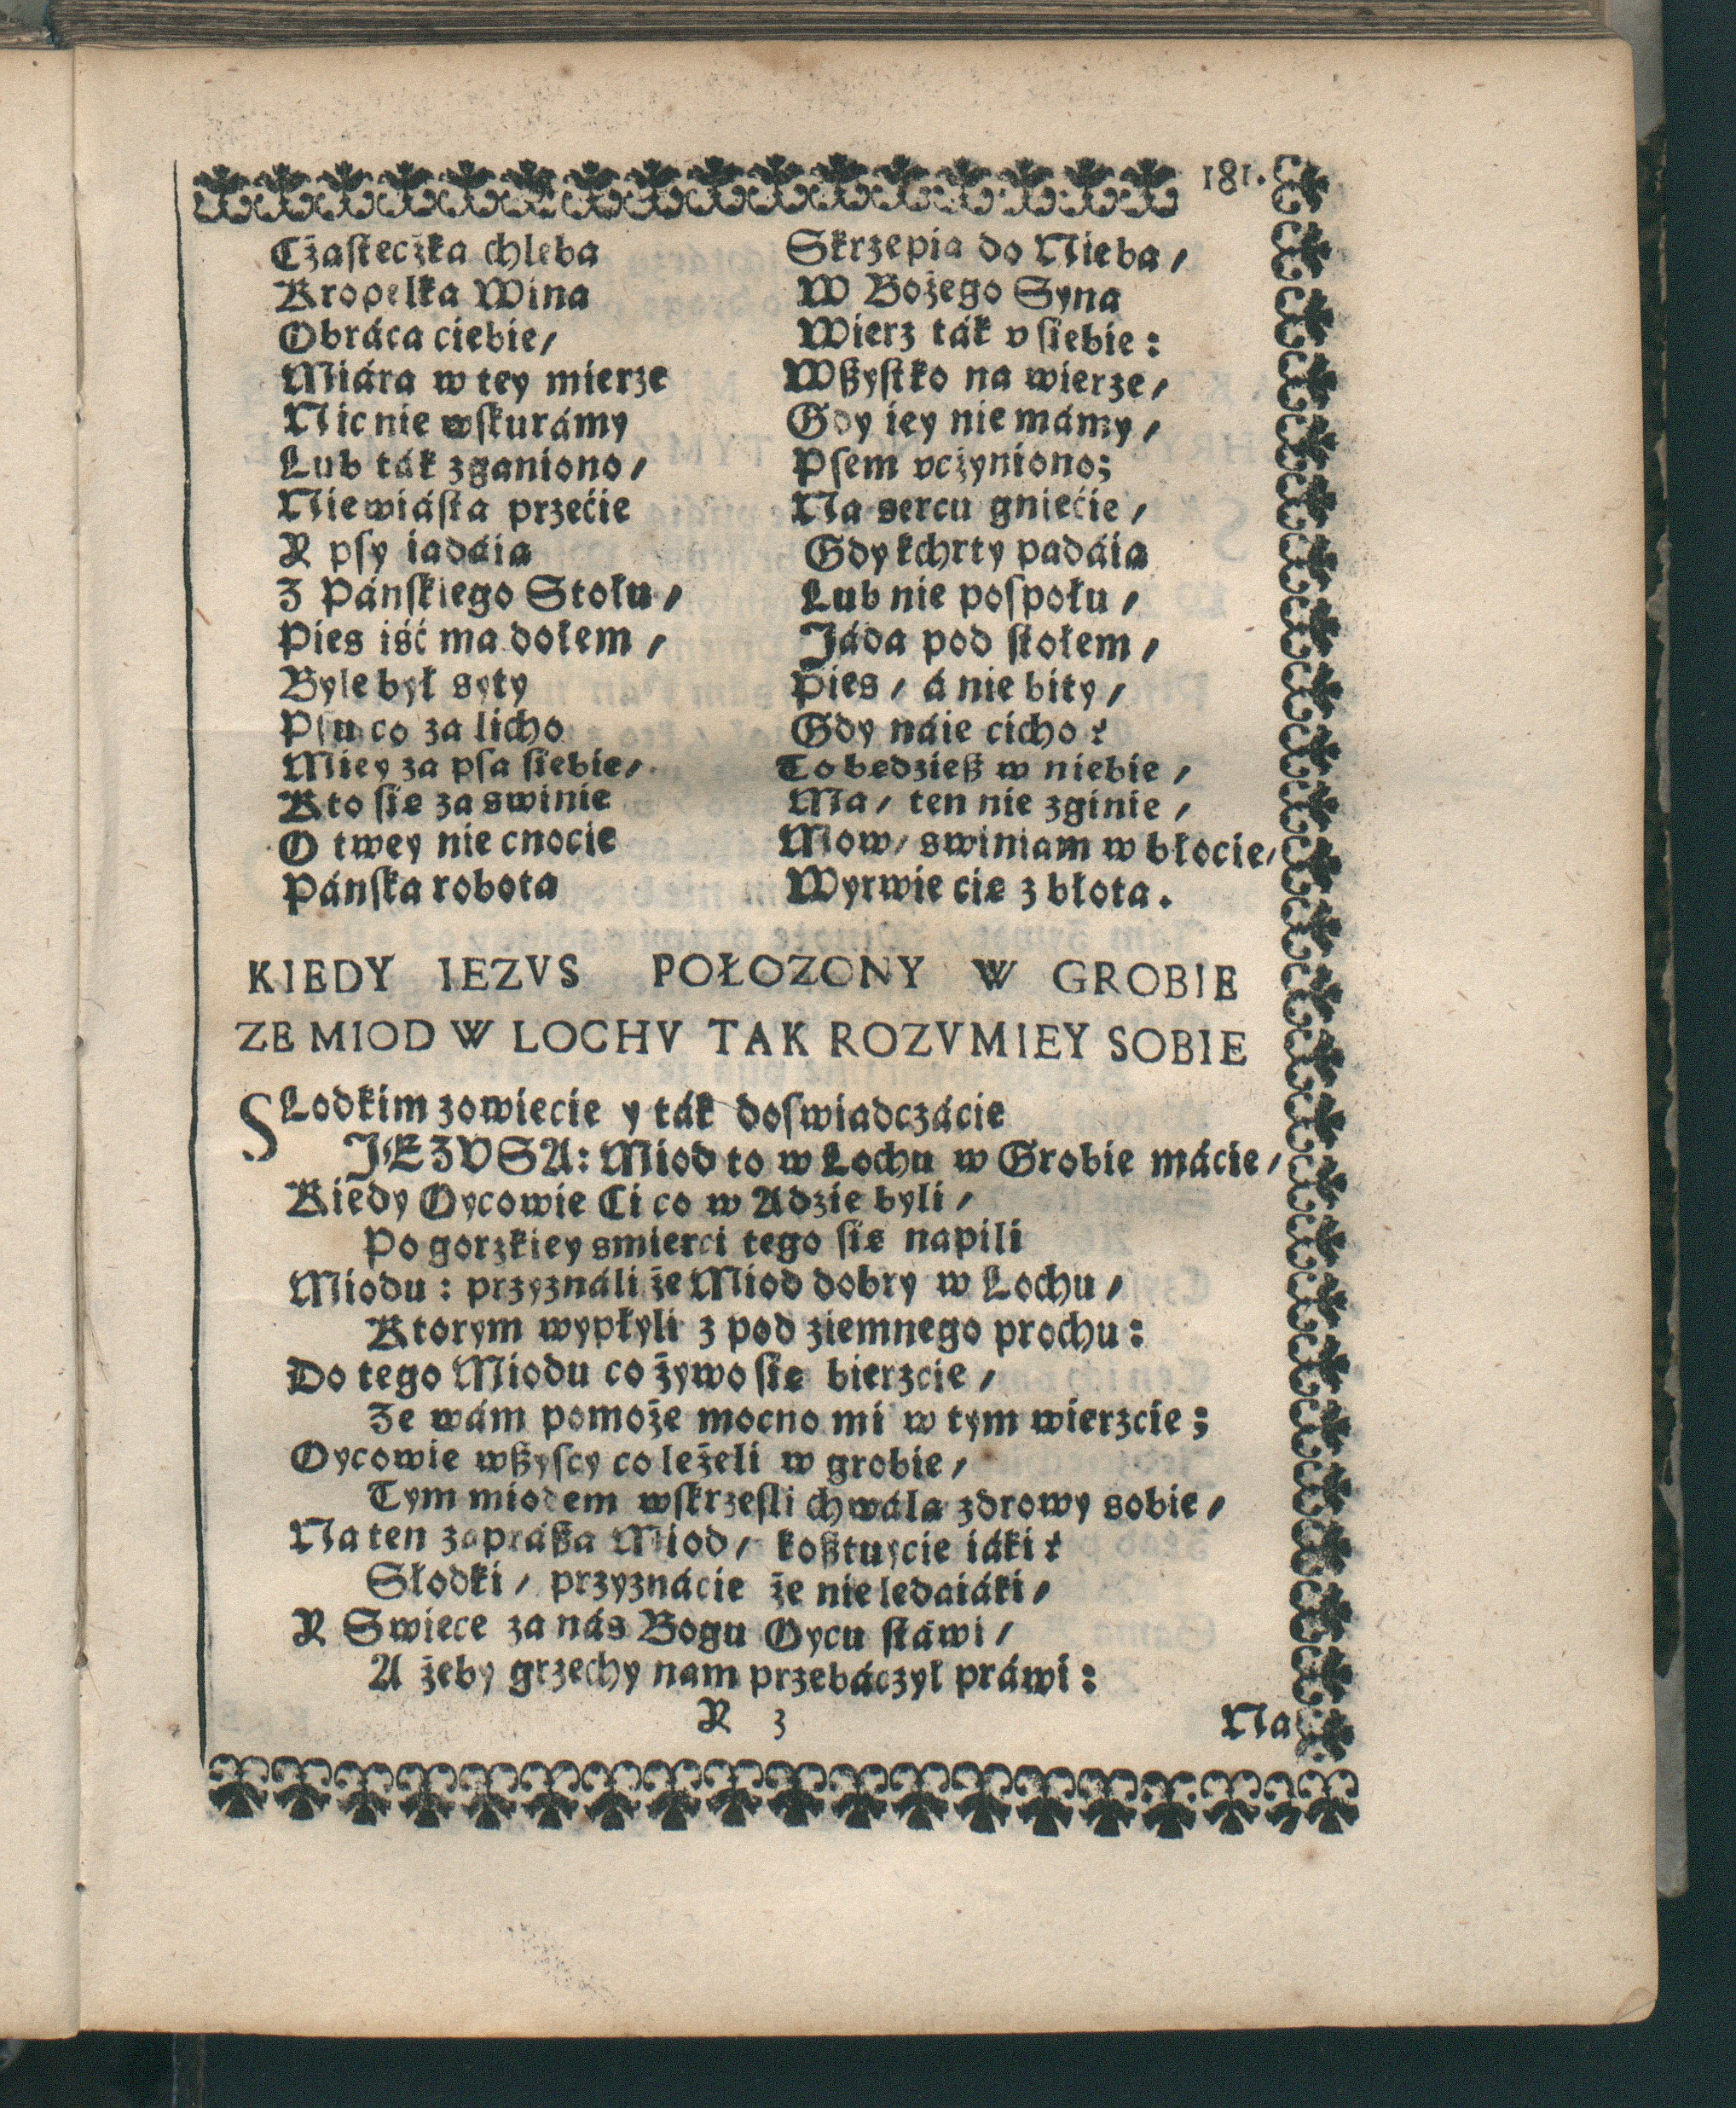 181.
Cżasteczka chleba Skrzepia do Nieba,
Kropelka Wina W Bożego Syna
Obráca ciebie, Wierz ták v siebie:
Miára w tey mierze Wßystko na wierze,
Nic nie wskurámy Gdy iey nie mámy,
Lub ták zganiono, Psem vcżyniono;
Niewiásta przećie Na sercu gniećie,
Y psy iadáia Gdy kchrty padáia
Z Pánskiego Stołu, Lub nie pospołu,
Pies iść ma dołem, Jáda pod stołem,
Byle był syty Pies, á nie bity,
Psu co za licho Gdy náie cicho?
Miey za psa siebie, To bedzieß w niebie,
Kto sie za swinie Ma, ten nie zginie,
O twey nie cnocie Mow, swiniam w błocie,
Pánska robota Wyrwie cie z błota.
KIEDY IEZVS POŁOZONY W GROBIE
ZE MIOD W LOCHV TAK ROZVMIEY SOBIE
SLodkim zowiecie y ták doswiadczácie
JEZVSA: Miod to w Lochu w Grobie mácie,
Kiedy Oycowie Ci co w Adzie byli,
Po gorzkiey smierci tego sie napili
Miodu: przyználi że Miod dobry w Lochu,
Ktorym wypłyli z pod ziemnego prochu:
Do tego Miodu co żywo sie bierzcie,
Ze wám pomoże mocno mi w tym wierzcie;
Oycowie wßyscy co leżeli w grobie,
Tym miodem wskrzesli chwála zdrowy sobie,
Na ten zapráßa Miod, koßtuycie iáki?
Słodki, przyznácie że nie ledaiáki,
Y Swiece za nás Bogu Oycu stáwi,
A żeby grzechy nam przebáczył práwi:
Y 3 Na